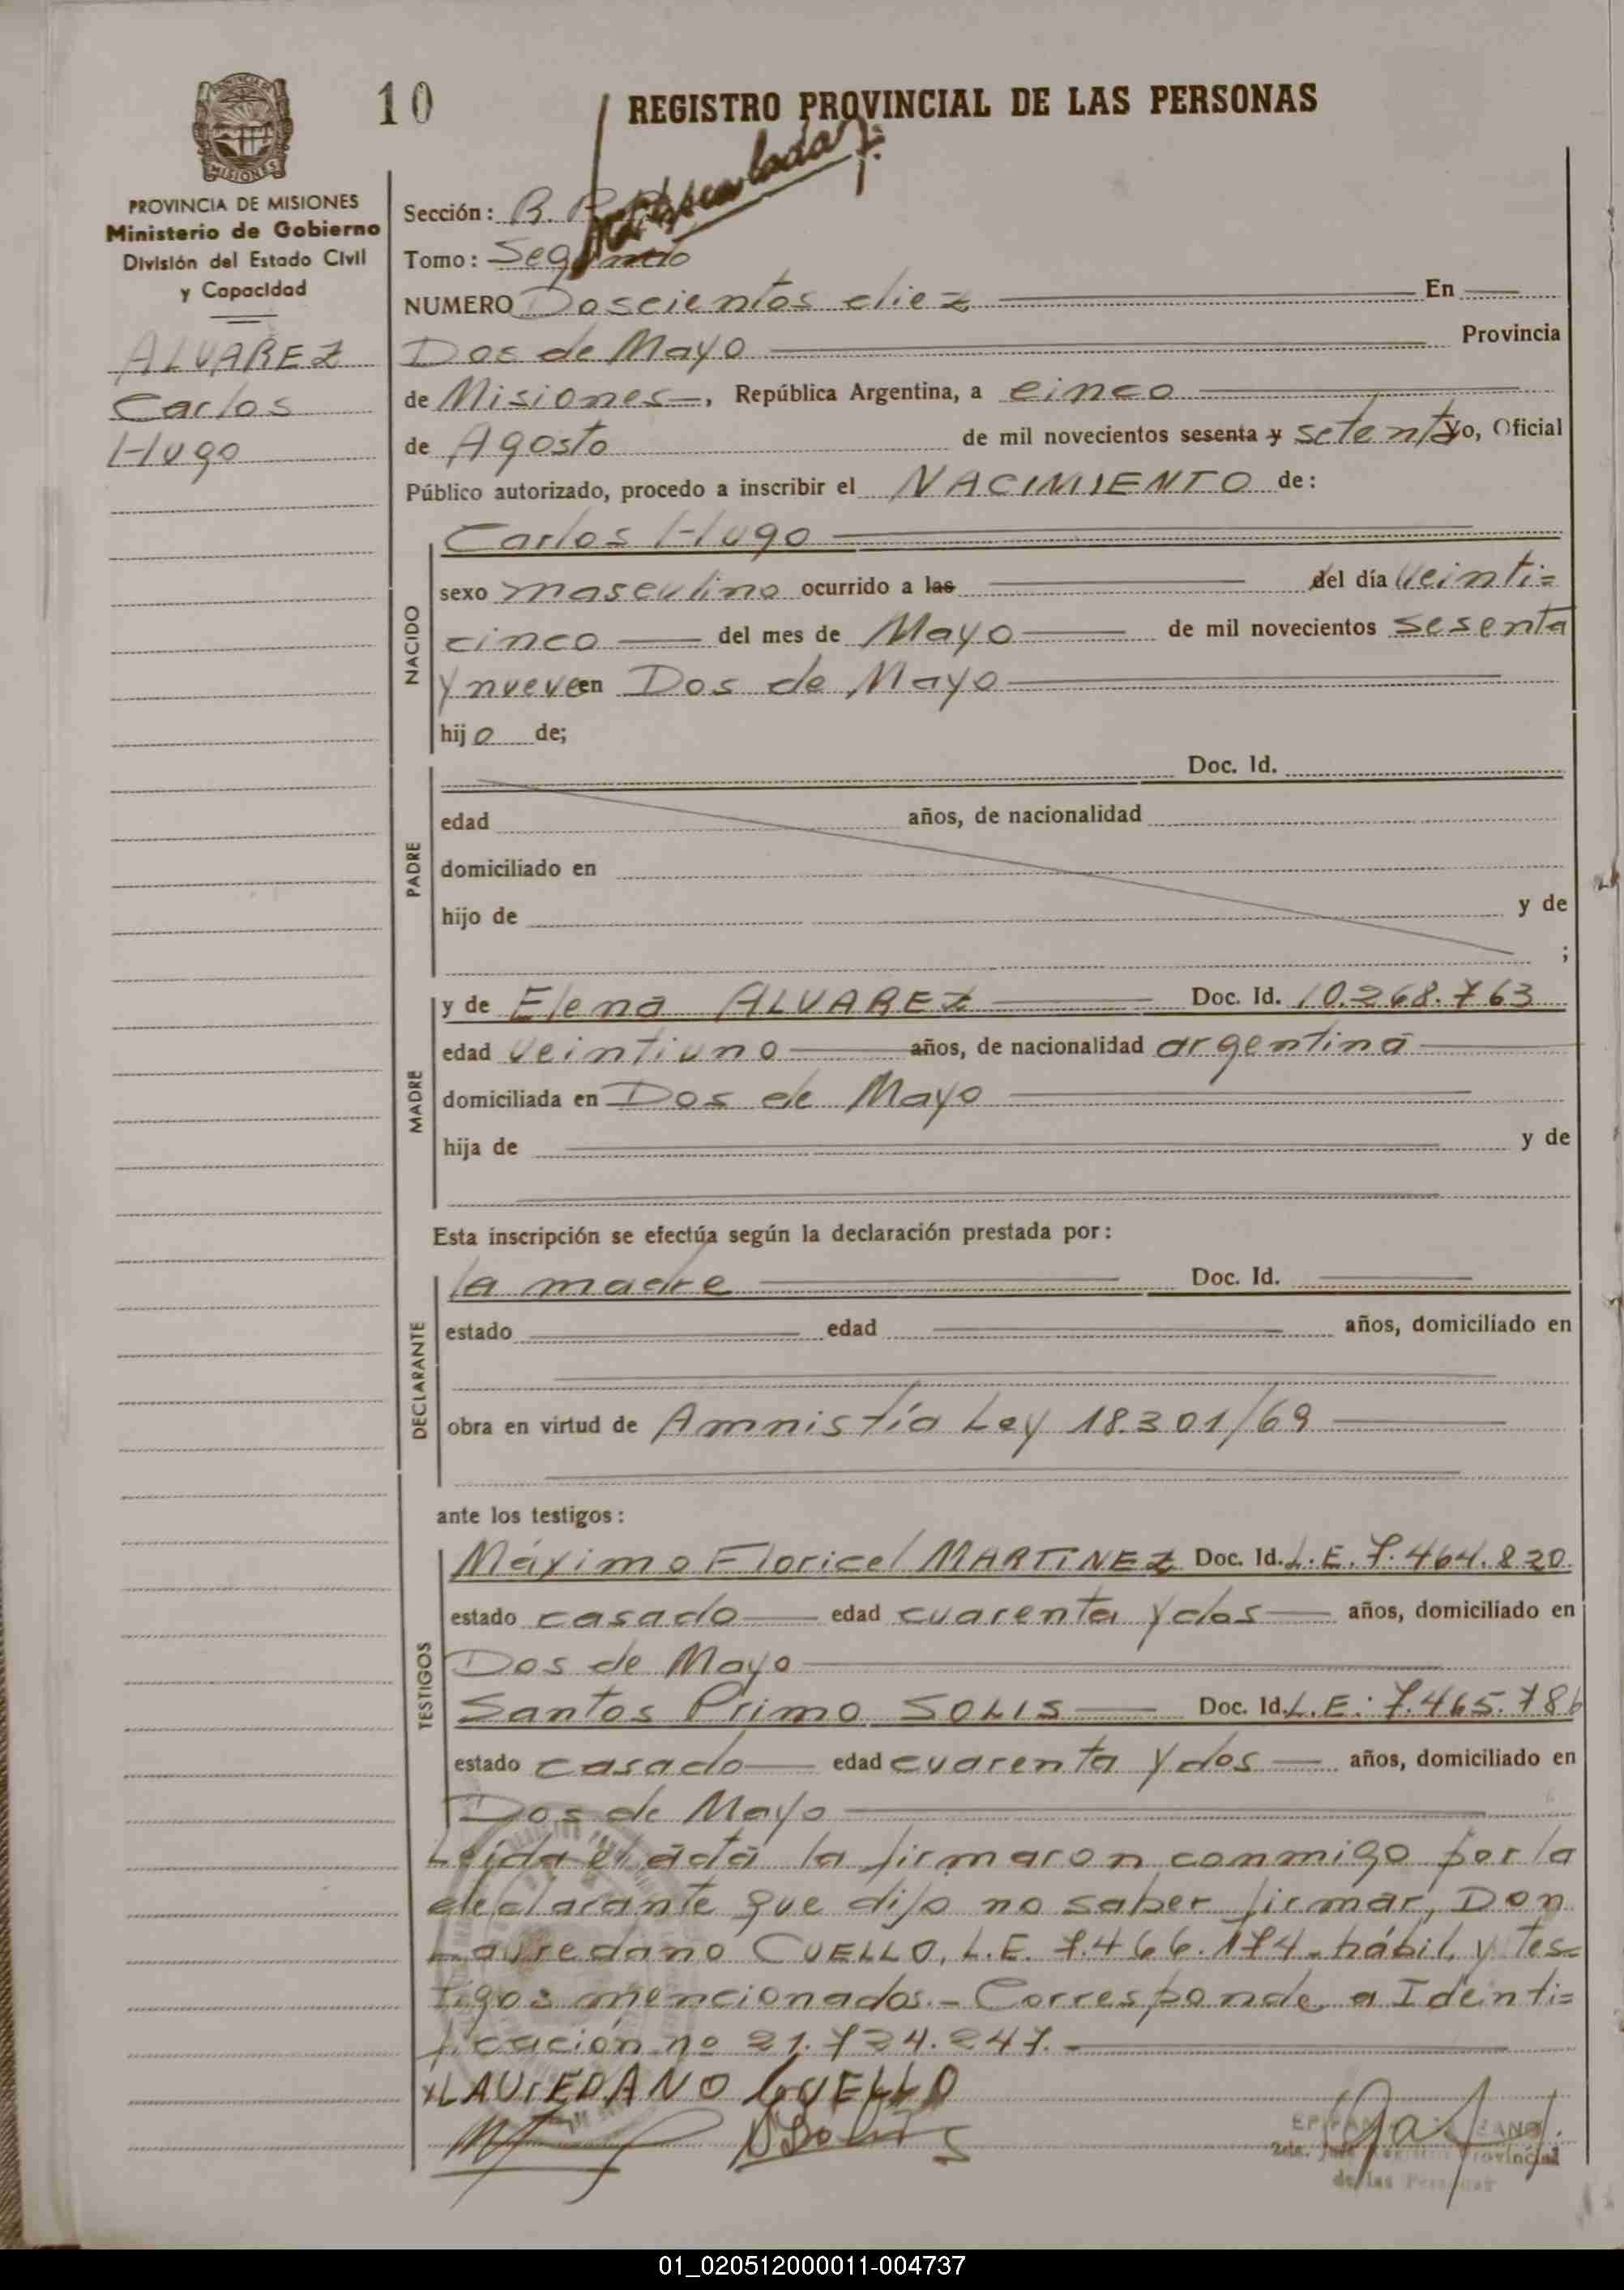 10
REGISTRO PROVINCIAL DE LAS PERSONAS
PROVINCIA DE MISIONES
Ministerio de Gobierno
División del Estado Civil
y Capacidad
ALVAREZ
Carlos
Hugo
Sección: R.
Tomo: Segundo
NUMERO Doscientos diez En
Dos de Mayo Provincia
de Misiones, República Argentina, a cinco
de Agosto de mil novecientos sesenta y setenta yo, Oficial
Público autorizado, procedo a inscribir el NACIMIENTO de:
NACIDO
Carlos Hugo
sexo masculino ocurrido a las del día Veinti=
cinco del mes de Mayo de mil novecientos sesenta
y nueve en Dos de Mayo
hijo de;
PADRE
Doc. Id.
edad años, de nacionalidad
domiciliado en
hijo de y de
;
MADRE
y de Elena ALVAREZ Doc. Id. 10.268.763
edad veintiuno años, de nacionalidad argentina
domiciliada en Dos de Mayo
hija de y de
Esta inscripción se efectúa según la declaración prestada por:
DECLARANTE
la madre Doc. Id.
estado edad años, domiciliado en
obra en virtud de Amnistía Ley 18.301/69
ante los testigos:
TESTIGOS
Máximo Floricel MARTINEZ Doc. Id. L.E. 7.464.820
estado casado edad cuarenta y dos años, domiciliado en
Dos de Mayo
Santos Primo SOLIS Doc. Id. L.E: 7.465.786
estado casado edad cuarenta y dos años, domiciliado en
Dos de Mayo
Leída el acta la firmaron conmigo por la
declarante que dijo no saber firmar, Don
Lauredano CUELLO, L.E. 7.466.174.- hábil, y tes=
tigos mencionados.- Corresponde a Identi=
ficación nº 21.724.247.-
x LAUREDANO CUELLO
Provincial
de las Personas
01_020512000011-004737